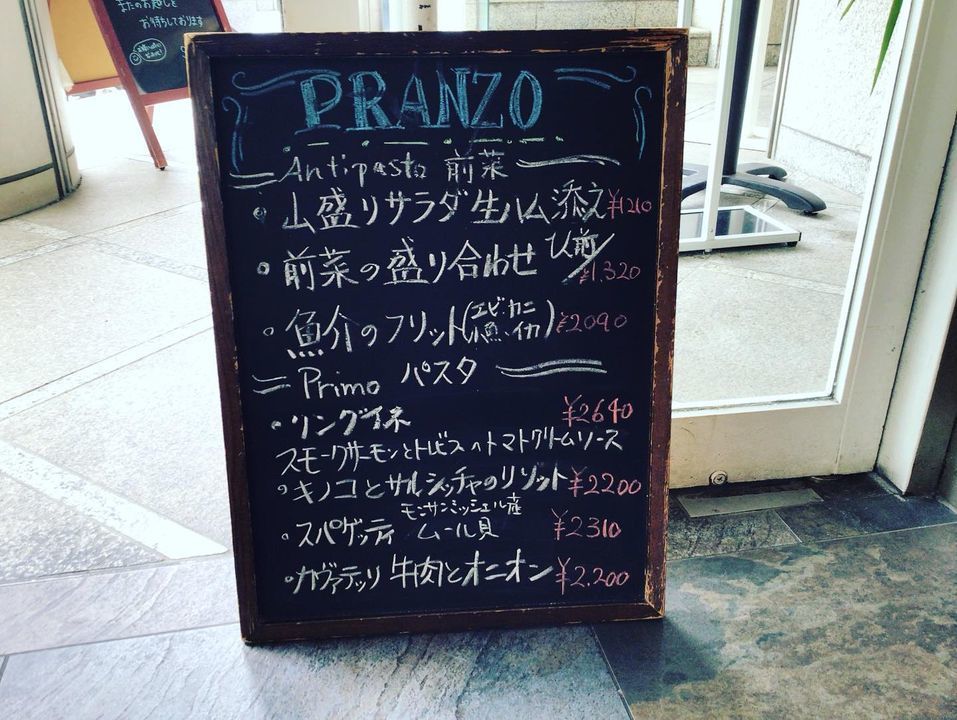 またのお越しを
お待ちしております
PRANZO
Antipasto 前菜
・山盛りサラダ生ハム添え ¥1210
・前菜の盛り合わせ ひ前/¥1,320
・魚介のフリット(エビ・カニ 小魚・イカ) ¥2090
Primo パスタ
・リングイネ ¥2640
スモークサーモンとトレビスのトマトクリームソース
・キノコとサルシッチャのリゾット ¥2200
モンサンミッシェル産
・スパゲッティ ムール貝 ¥2310
・カヴァテッリ 牛肉とオニオン ¥2,200